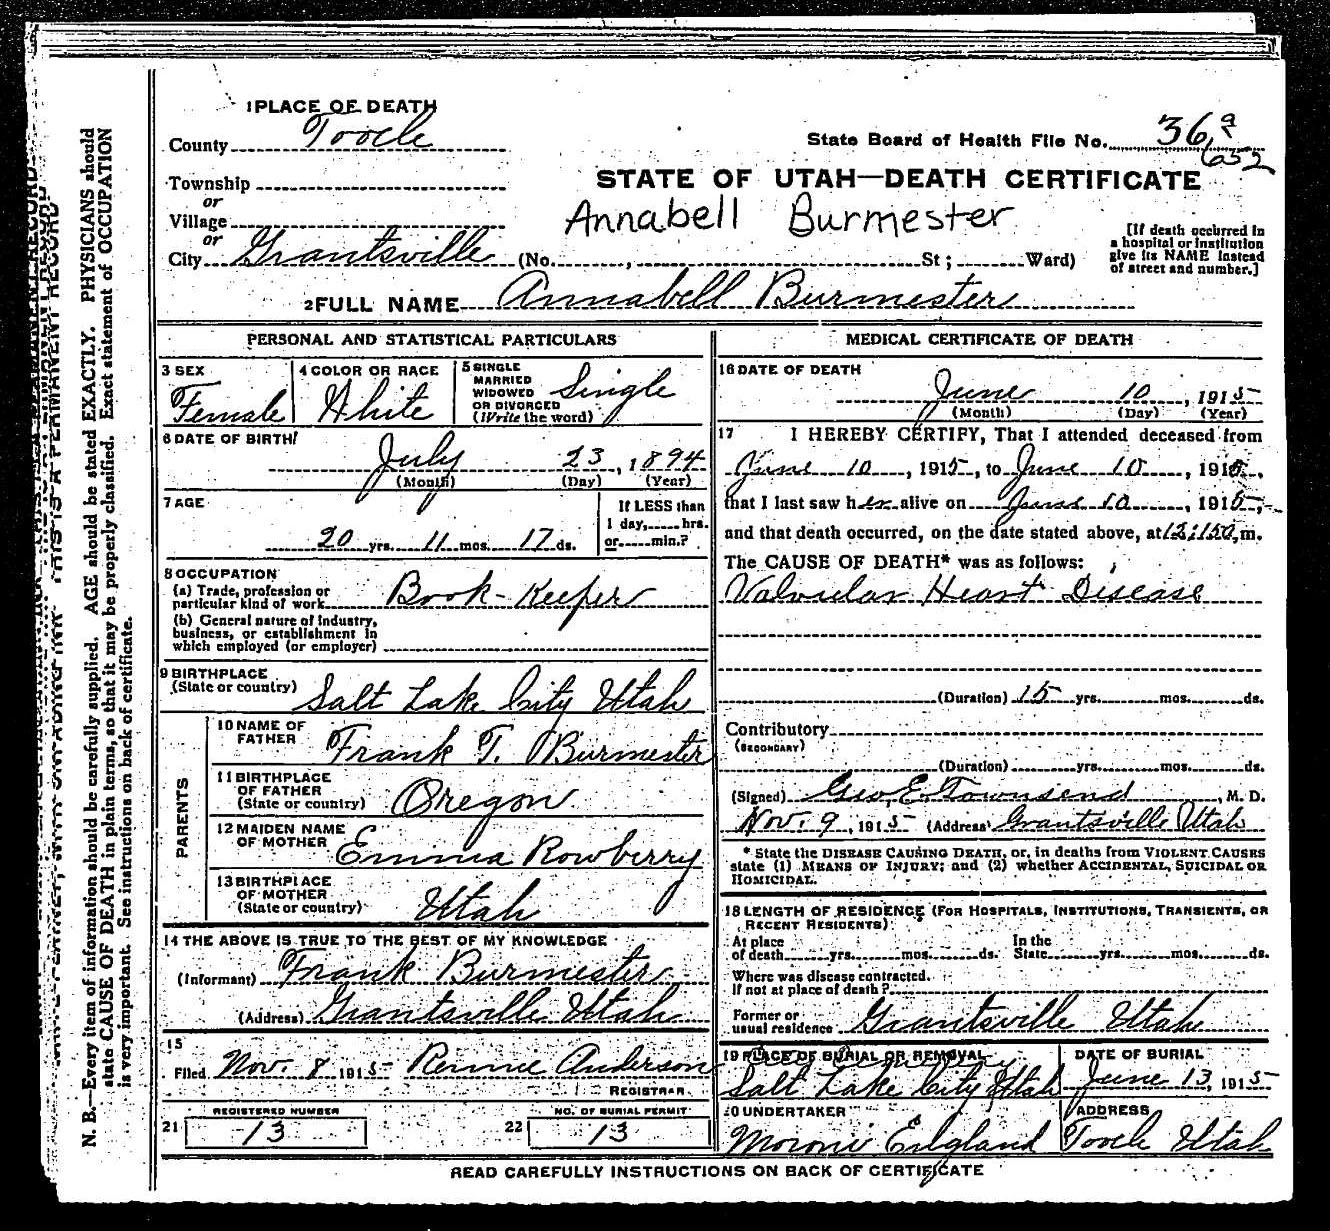 1 PLACE OF DEATH
County Tooele
State Board of Health File No. 36 a
652
Township
or
Village
or
City Grantsville (No. , St ; Ward)
STATE OF UTAH—DEATH CERTIFICATE
Annabell Burmester
[If death occurred in
a hospital or institution
give its NAME instead
of street and number.]
2 FULL NAME Annabell Burmester
PERSONAL AND STATISTICAL PARTICULARS
3 SEX
Female
4 COLOR OR RACE
White
5 SINGLE
MARRIED
WIDOWED
OR DIVORCED
(Write the word)
Single
6 DATE OF BIRTH
July 23, 1894
(Month) (Day) (Year)
7 AGE
20 yrs. 11 mos. 17 ds.
If LESS than
1 day, hrs.
or min.?
8 OCCUPATION
(a) Trade, profession or
particular kind of work Book-Keeper
(b) General nature of industry,
business, or establishment in
which employed (or employer)
9 BIRTHPLACE
(State or country) Salt Lake City Utah
PARENTS
10 NAME OF
FATHER Frank T. Burmester
11 BIRTHPLACE
OF FATHER
(State or country) Oregon
12 MAIDEN NAME
OF MOTHER Emma Rowberry
13 BIRTHPLACE
OF MOTHER
(State or country) Utah
14 THE ABOVE IS TRUE TO THE BEST OF MY KNOWLEDGE
(Informant) Frank Burmester
(Address) Grantsville Utah
15
Filed Nov. 8 1915 Rennie Anderson
REGISTRAR
REGISTERED NUMBER
21 13
NO. OF BURIAL PERMIT
22 13
MEDICAL CERTIFICATE OF DEATH
16 DATE OF DEATH
June 10, 1915
(Month) (Day) (Year)
17 I HEREBY CERTIFY, That I attended deceased from
June 10, 1915, to June 10, 1915,
that I last saw her alive on June 10, 1915,
and that death occurred, on the date stated above, at m.
The CAUSE OF DEATH* was as follows:
Valvular Heart Disease
(Duration) 15 yrs. mos. ds.
Contributory
(SECONDARY)
(Duration) yrs. mos. ds.
(Signed) Geo. E. Townsend, M. D.
Nov. 9, 1915 (Address) Grantsville Utah
* State the DISEASE CAUSING DEATH, or, in deaths from VIOLENT CAUSES
state (1) MEANS OF INJURY; and (2) whether ACCIDENTAL, SUICIDAL OR
HOMICIDAL.
18 LENGTH OF RESIDENCE (FOR HOSPITALS, INSTITUTIONS, TRANSIENTS, OR
RECENT RESIDENTS)
At place
of death yrs. mos. ds.
In the
State yrs. mos. ds.
Where was disease contracted.
If not at place of death?
Former or
usual residence Grantsville Utah
19 PLACE OF BURIAL OR REMOVAL
Salt Lake City Utah
DATE OF BURIAL
June 13, 1915
20 UNDERTAKER
Moroni England
ADDRESS
Tooele Utah
READ CAREFULLY INSTRUCTIONS ON BACK OF CERTIFICATE
THIS IS A PERMANENT RECORD
N. B.—Every item of information should be carefully supplied. AGE should be stated EXACTLY. PHYSICIANS should
state CAUSE OF DEATH in plain terms, so that it may be properly classified. Exact statement of OCCUPATION
is very important. See instructions on back of certificate.